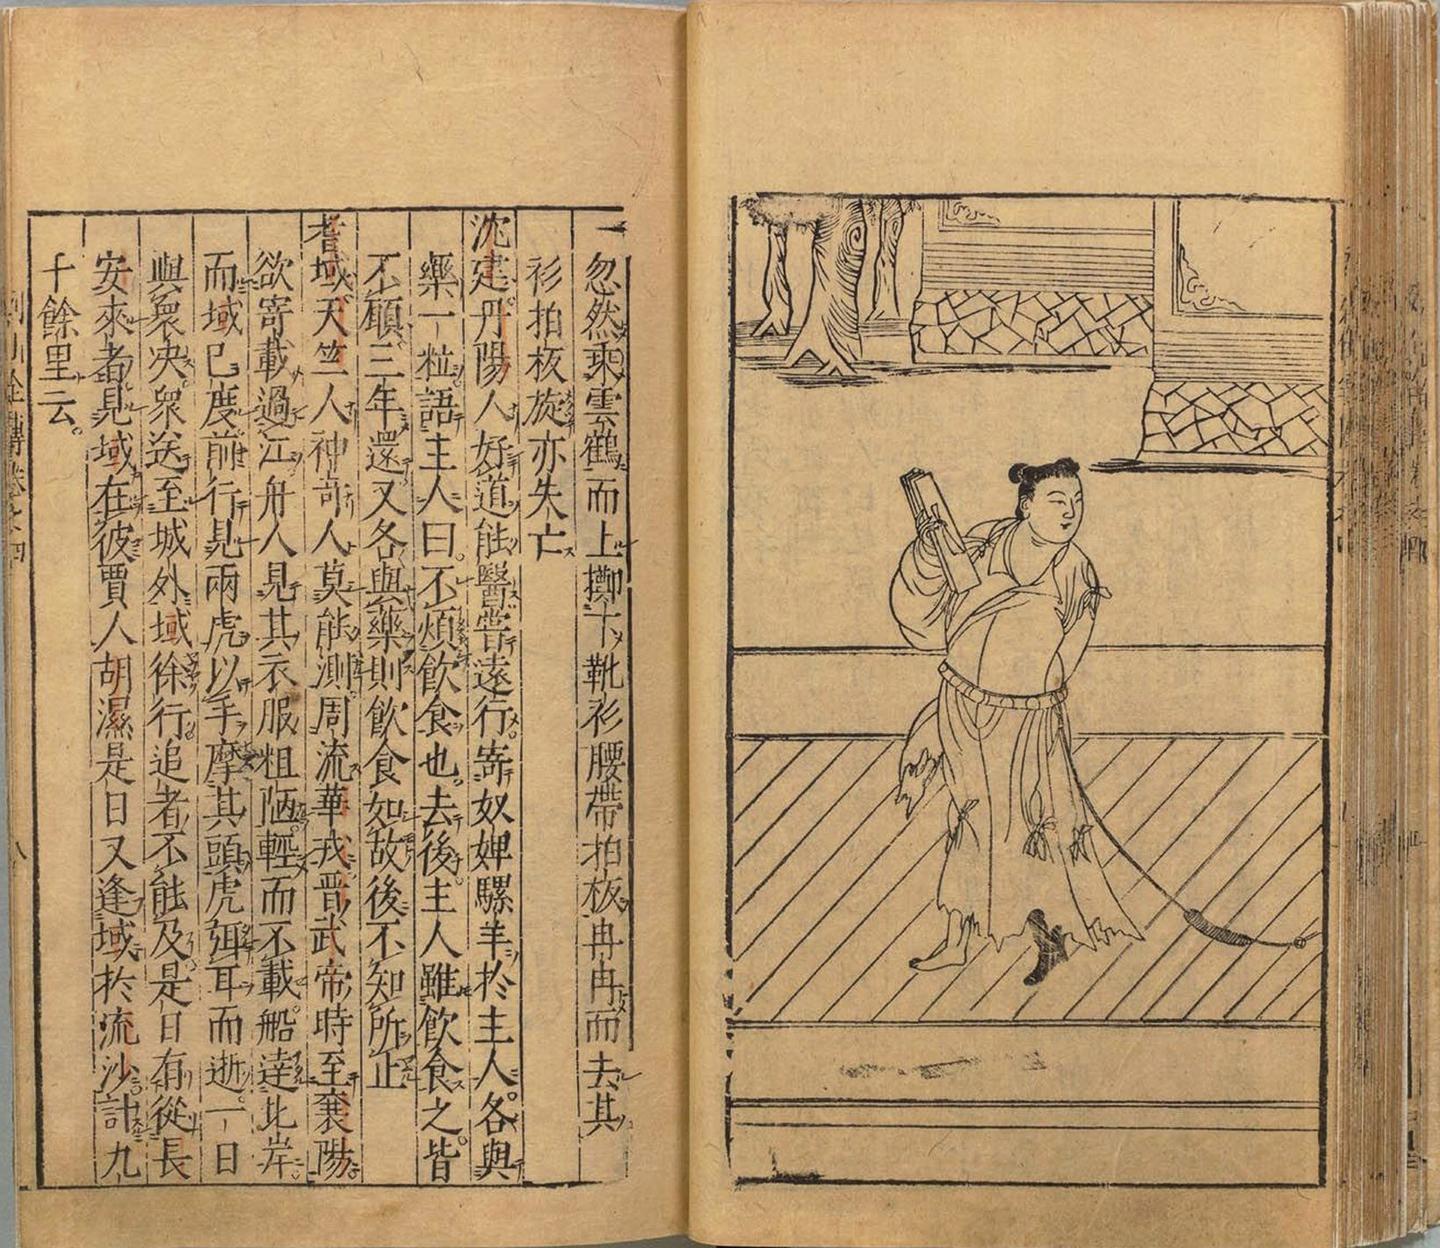 忽然乘雲鶴而上擲下靴衫腰帶拍板冉冉而去其
衫拍板旋亦失亡
沈建丹陽人好道能醫嘗遠行寄奴婢騾羊於主人各與
藥一粒語主人曰不煩飲食也去後主人雖飲食之皆
不顧三年還又各與藥則飲食如故後不知所止
耆域天竺人神奇人莫能測周流華戎晉武帝時至襄陽
欲寄載過江舟人見其衣服粗陋輕而不載船達北岸
而域已度前行見兩虎以手摩其頭虎弭耳而逝一日
與衆決衆送至城外域徐行追者不能及是日有從長
安來者見域在彼賈人胡濕是日又逢域於流沙計九
千餘里云
列仙全傳卷之四